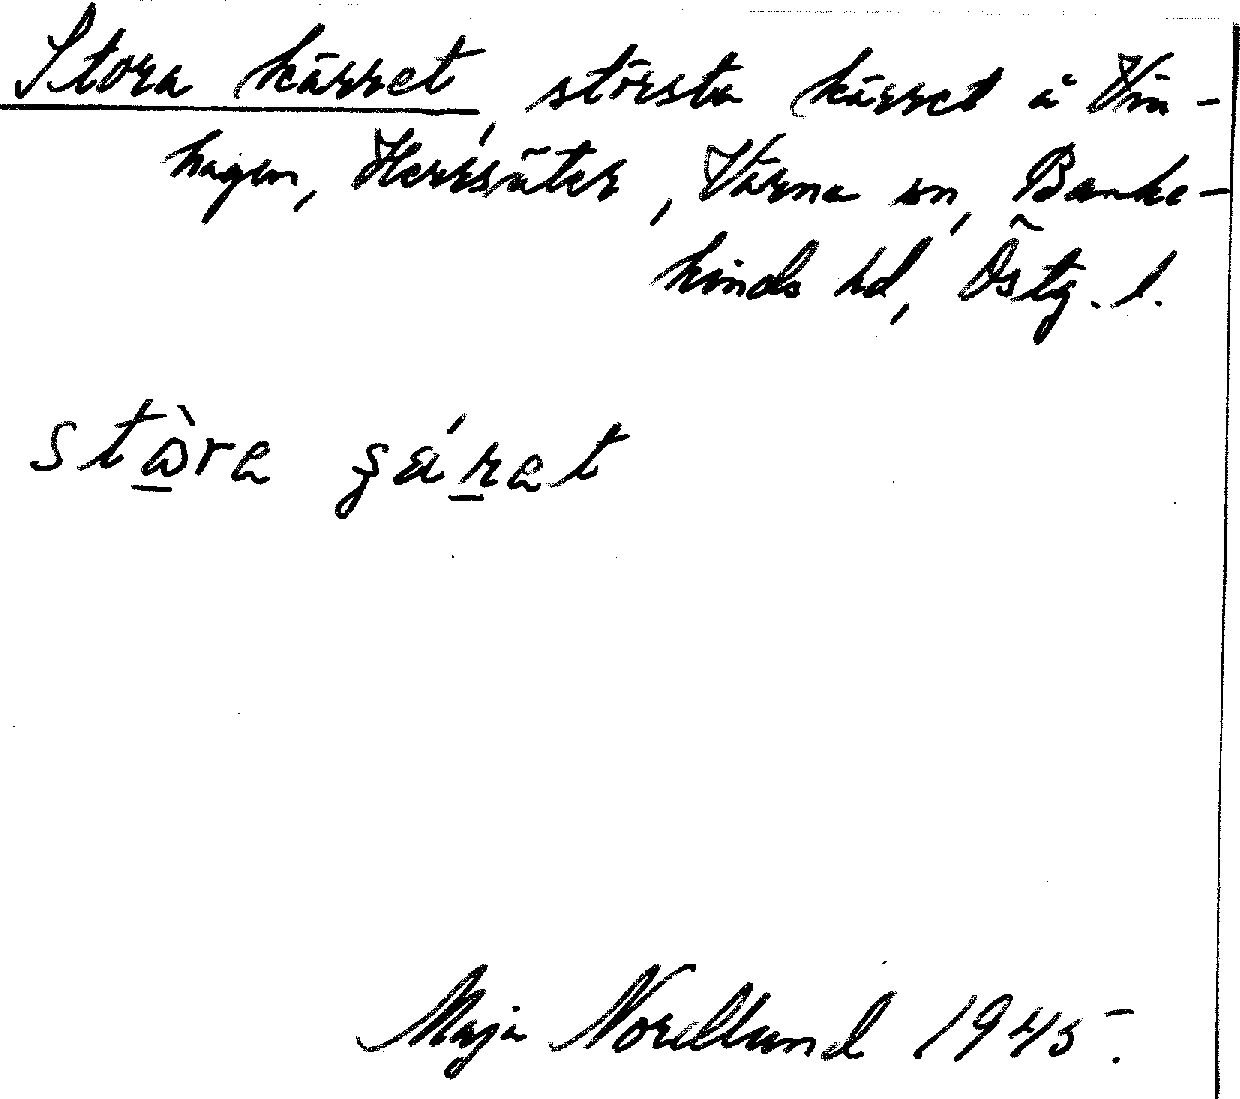 Stora kärret, största kärret å Vin-
hagen, Herrsäter, Värna sn, Banke-
kinds hd, Östg. l.
stòra şä́ret
Maja Nordlund 1945.